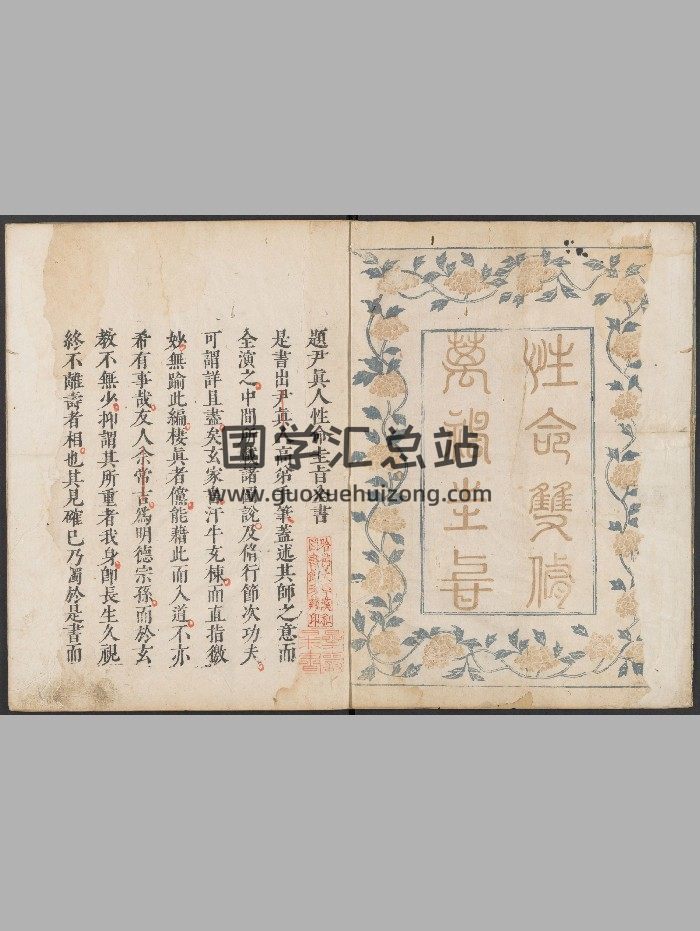 性命雙脩
萬神圭旨
題尹眞人性命圭旨全書
是書出尹眞人高弟手筆蓋述其師之意而
全演之中間所繪諸圖說及脩行節次功夫
可謂詳且盡矣玄家書汗牛充棟而直指微
妙無踰此編棲眞者儻能藉此而入道不亦
希有事哉友人余常吉爲明德宗孫而於玄
教不無少抑謂其所重者我身卽長生久視
終不離壽者相也其見確已乃獨於是書而
国学汇总站
www.guoxuehuizong.com